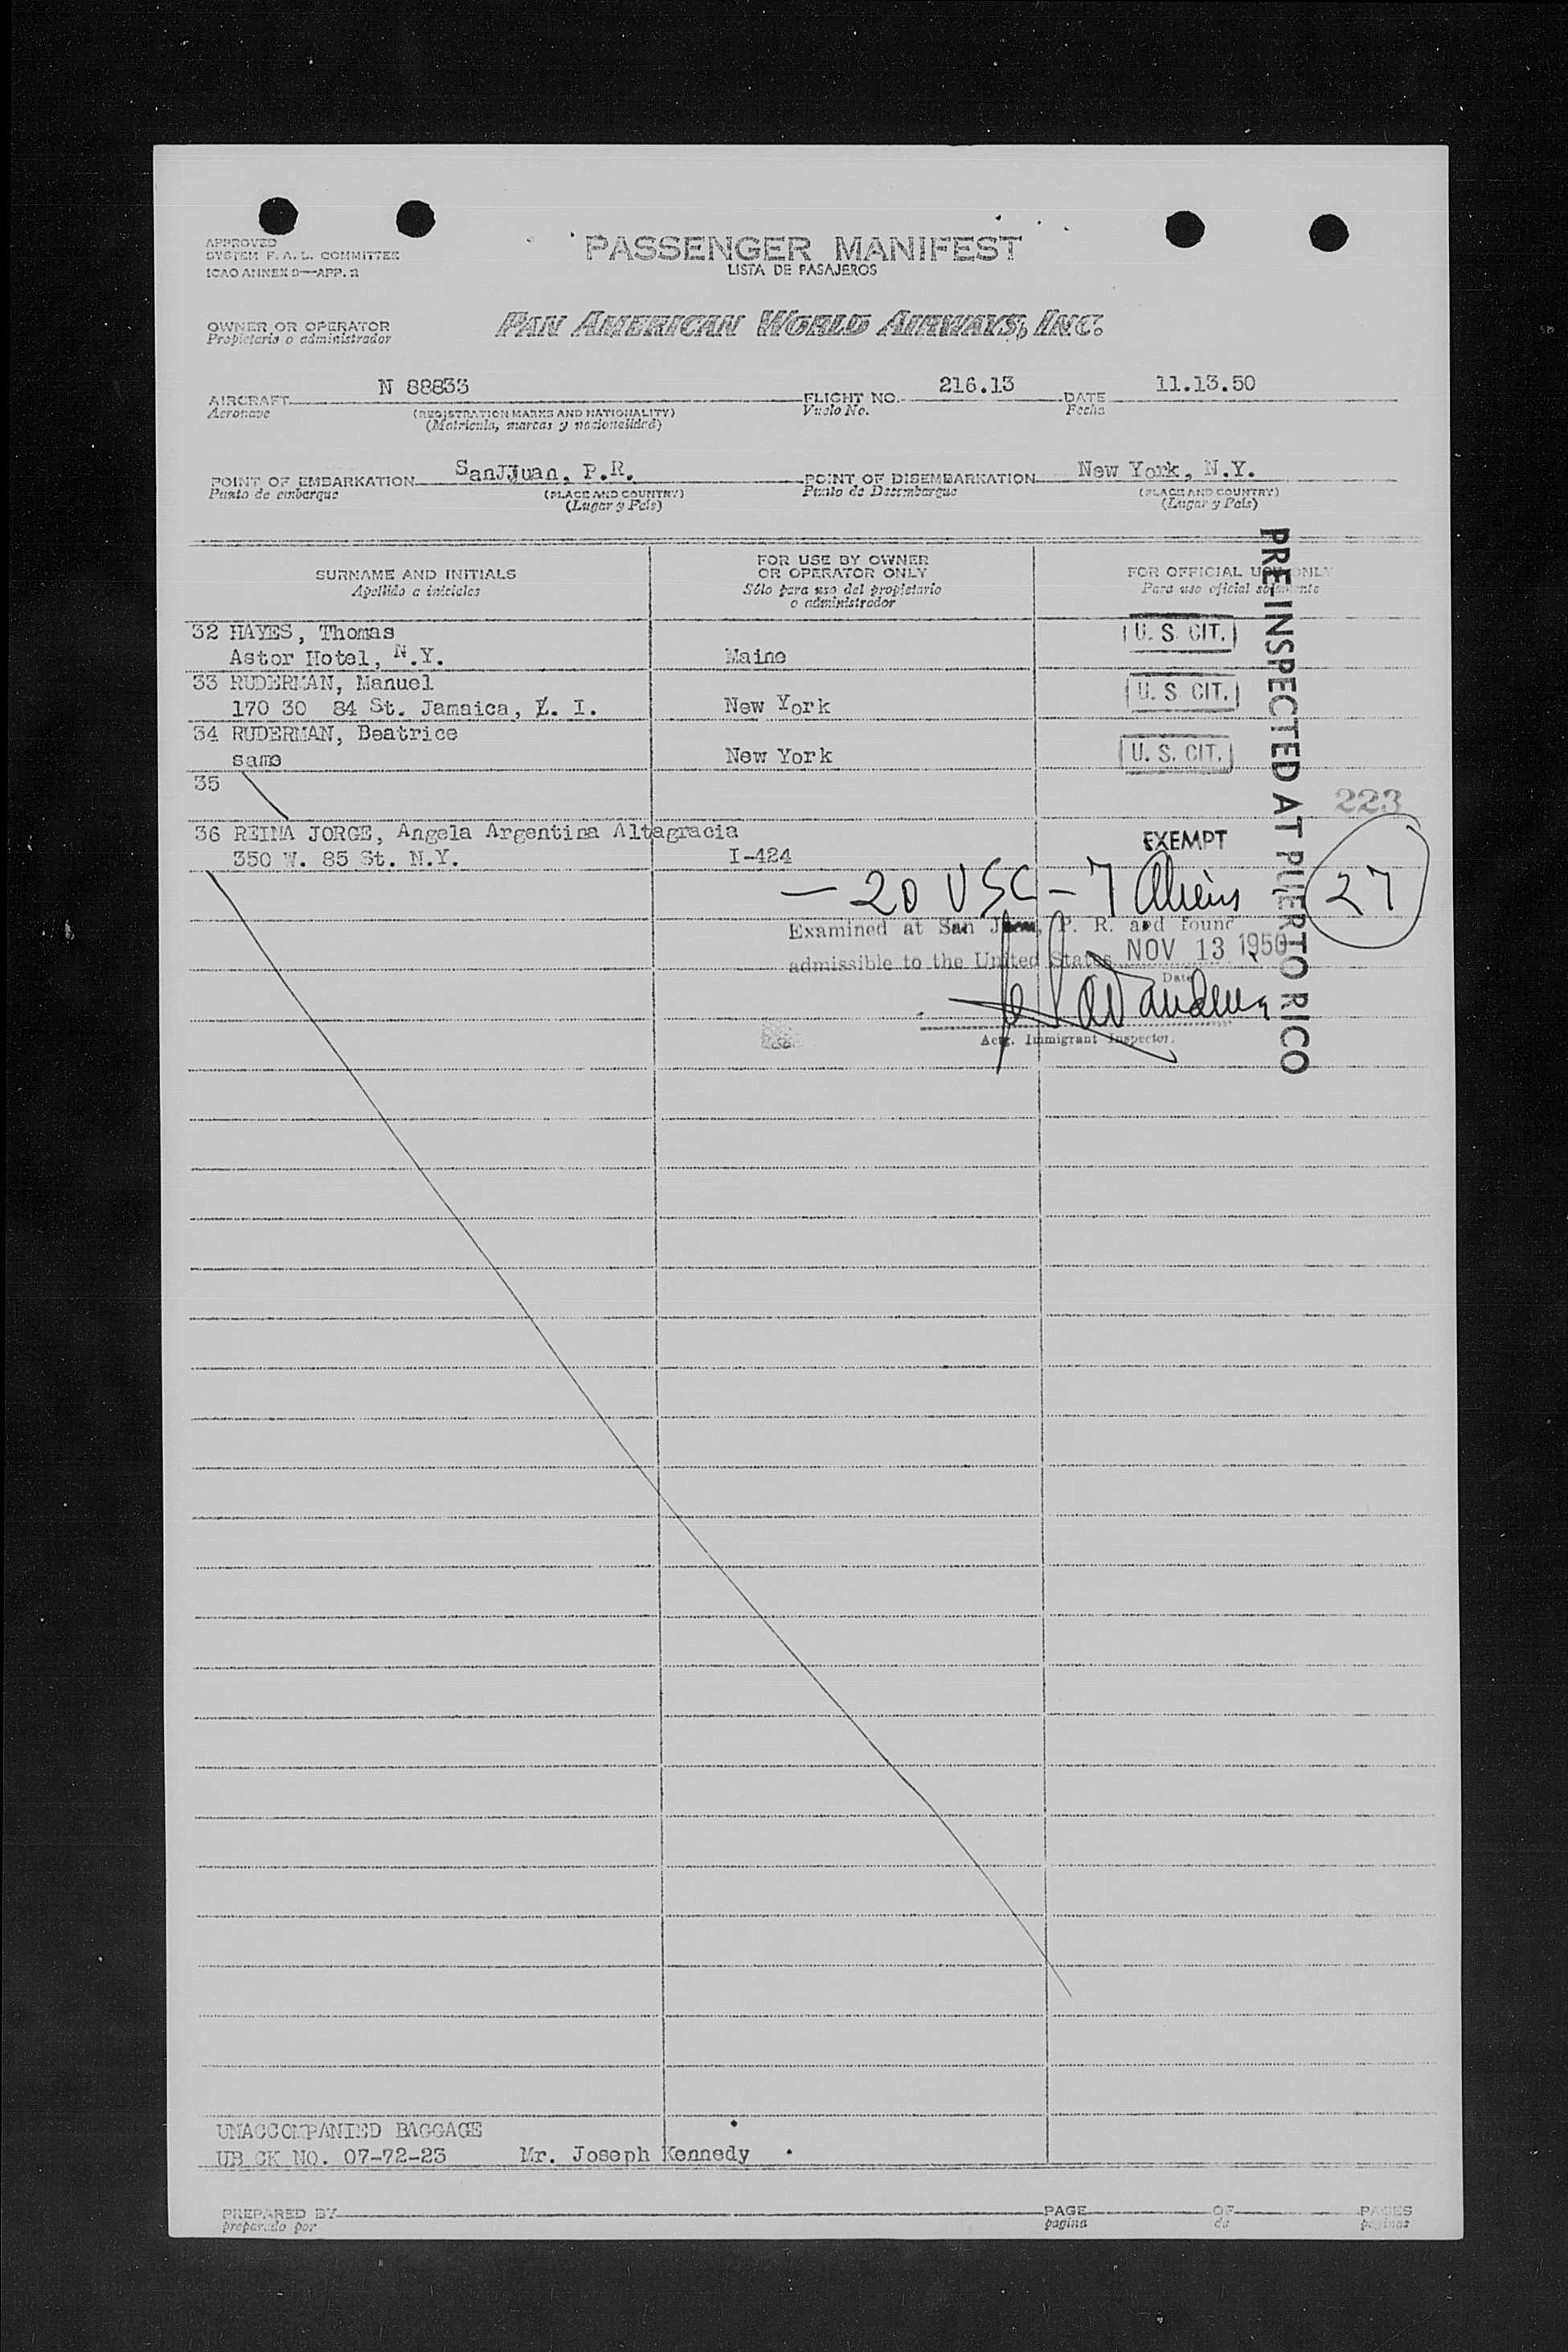 APPROVED
SYSTEM F. A. L. COMMITTEE
ICAO ANNEX 9—APP. 2
PASSENGER MANIFEST
LISTA DE PASAJEROS
OWNER OR OPERATOR
Propietario o administrador
PAN AMERICAN WORLD AIRWAYS, INC.
AIRCRAFT N 88833 FLIGHT NO. 216.13 DATE 11.13.50
Aeronave (REGISTRATION MARKS AND NATIONALITY) Vuelo No. Fecha
(Matrícula, marcas y nacionalidad)
POINT OF EMBARKATION SanJJuan, P.R. POINT OF DISEMBARKATION New York, N.Y.
Punto de embarque (PLACE AND COUNTRY) Punto de Desembarque (PLACE AND COUNTRY)
(Lugar y País) (Lugar y País)
SURNAME AND INITIALS
Apellido a iniciales
FOR USE BY OWNER
OR OPERATOR ONLY
Sólo para uso del propietario
o administrador
FOR OFFICIAL USE ONLY
Para uso oficial solamente
32 HAYES, Thomas U. S. CIT.
Astor Hotel, N.Y. Maine
33 RUDERMAN, Manuel U. S. CIT.
170 30 84 St. Jamaica, L. I. New York
34 RUDERMAN, Beatrice U. S. CIT.
same New York
35
223
36 REINA JORGE, Angela Argentina Altagracia EXEMPT
350 W. 85 St. N.Y. I-424
— 20 USC - 7 Aliens 27
Examined at San Juan, P. R. and found
admissible to the United States NOV 13 1950
Date
Actg. Immigrant Inspector.
PRE-INSPECTED AT PUERTO RICO
UNACCOMPANIED BAGGAGE
UB CK NO. 07-72-23 Mr. Joseph Kennedy
PREPARED BY PAGE OF PAGES
preparado por pagina de paginas